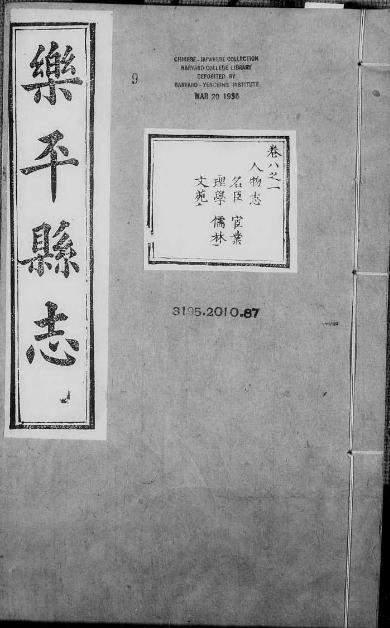 樂平縣志
9
CHINESE-JAPANESE COLLECTION
HARVARD COLLEGE LIBRARY
DEPOSITED BY
HARVARD-YENCHING INSTITUTE
MAR 20 1936
卷八之一
人物志
名臣 宦業
理學 儒林
文苑
3195.2010.87